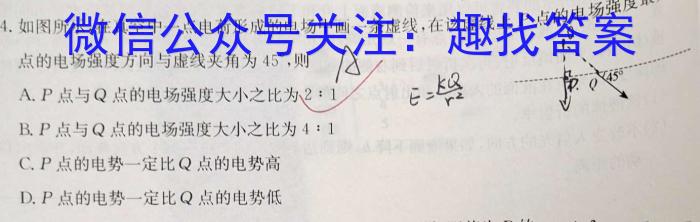 4. 如图所 在真空中一点电荷形成的电场中画一条虚线,在该 点的电场强度最
微信公众号关注：趣找答案
点的电场强度方向与虚线夹角为45°,则
A
A. P点与Q点的电场强度大小之比为2∶1
E=kQ/r²
P. Q 45°
B. P点与Q点的电场强度大小之比为4∶1
C. P点的电势一定比Q点的电势高
D. P点的电势一定比Q点的电势低